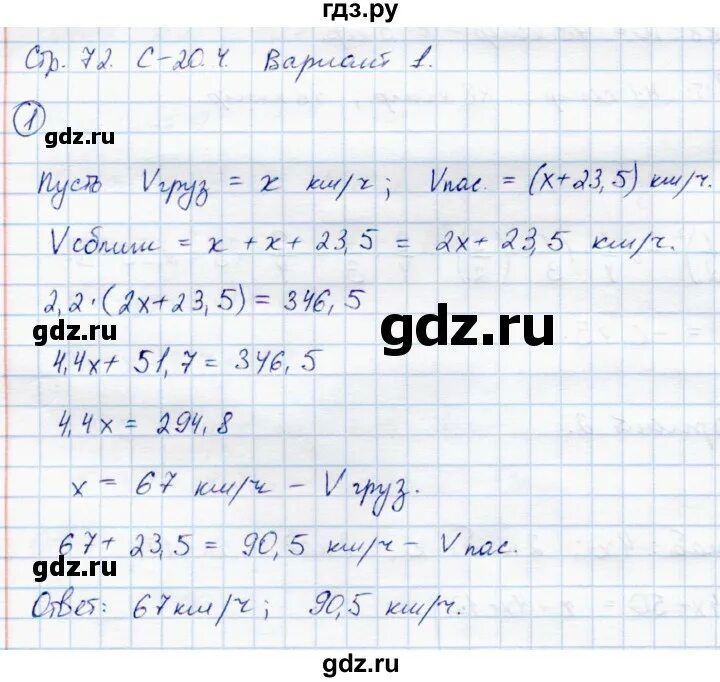 гдз.ру
Стр. 72. С-20.4. Вариант 1.
1
gdz.ru
Пусть Vгруз = x км/ч; Vпас. = (x+23,5) км/ч.
Vсближ = x + x + 23,5 = 2x + 23,5 км/ч.
2,2·(2x+23,5) = 346,5
gdz.ru
gdz.ru
4,4x + 51,7 = 346,5
4,4x = 294,8
x = 67 км/ч – Vгруз.
67 + 23,5 = 90,5 км/ч – Vпас.
gdz.ru
Ответ: 67км/ч; 90,5 км/ч.
gdz.ru